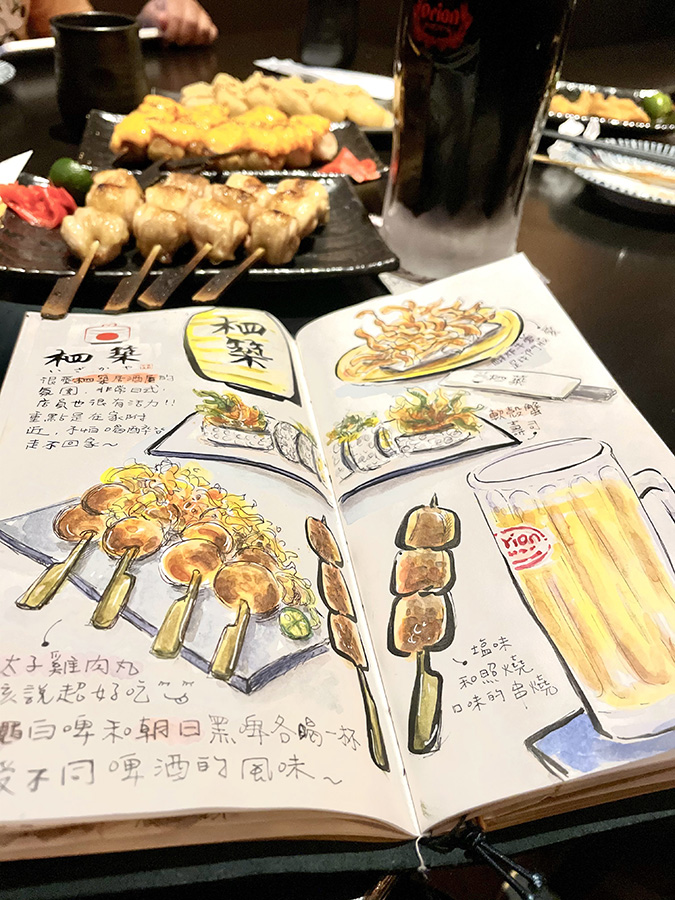 Orion
梱築
いざかや
很愛梱築居酒屋的
氛圍, 非常日式
店員也很有活力!!
重點是在家附
近, 不怕喝醉
走不回家~
梱築
梱築
軟殼蟹
壽司
rion
塩味
和照燒
口味的串燒
太子雞肉丸
該說超好吃
白啤和朝日黑啤各喝一杯
不同啤酒的風味~